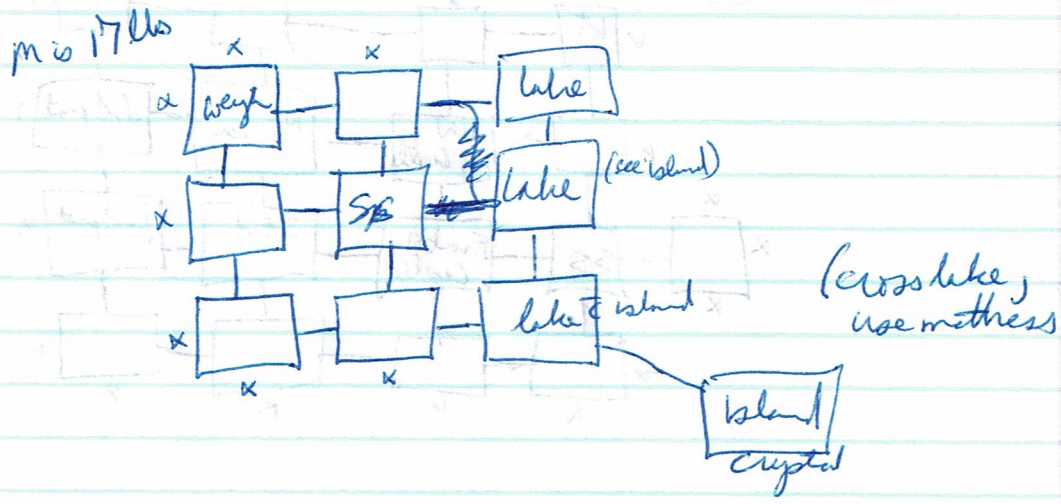 m is 17 lbs
x x
x weigh lake
x lake (see island)
x lake c̄ island
x x
(cross lake,
use mattress
island
crystal